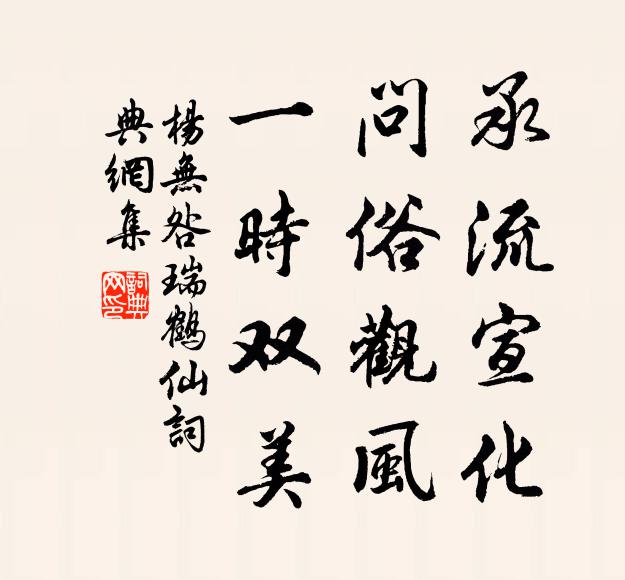 承流宣化
問俗觀風
一時双美
楊無咎瑞鶴仙詞
典網集
詞典网印